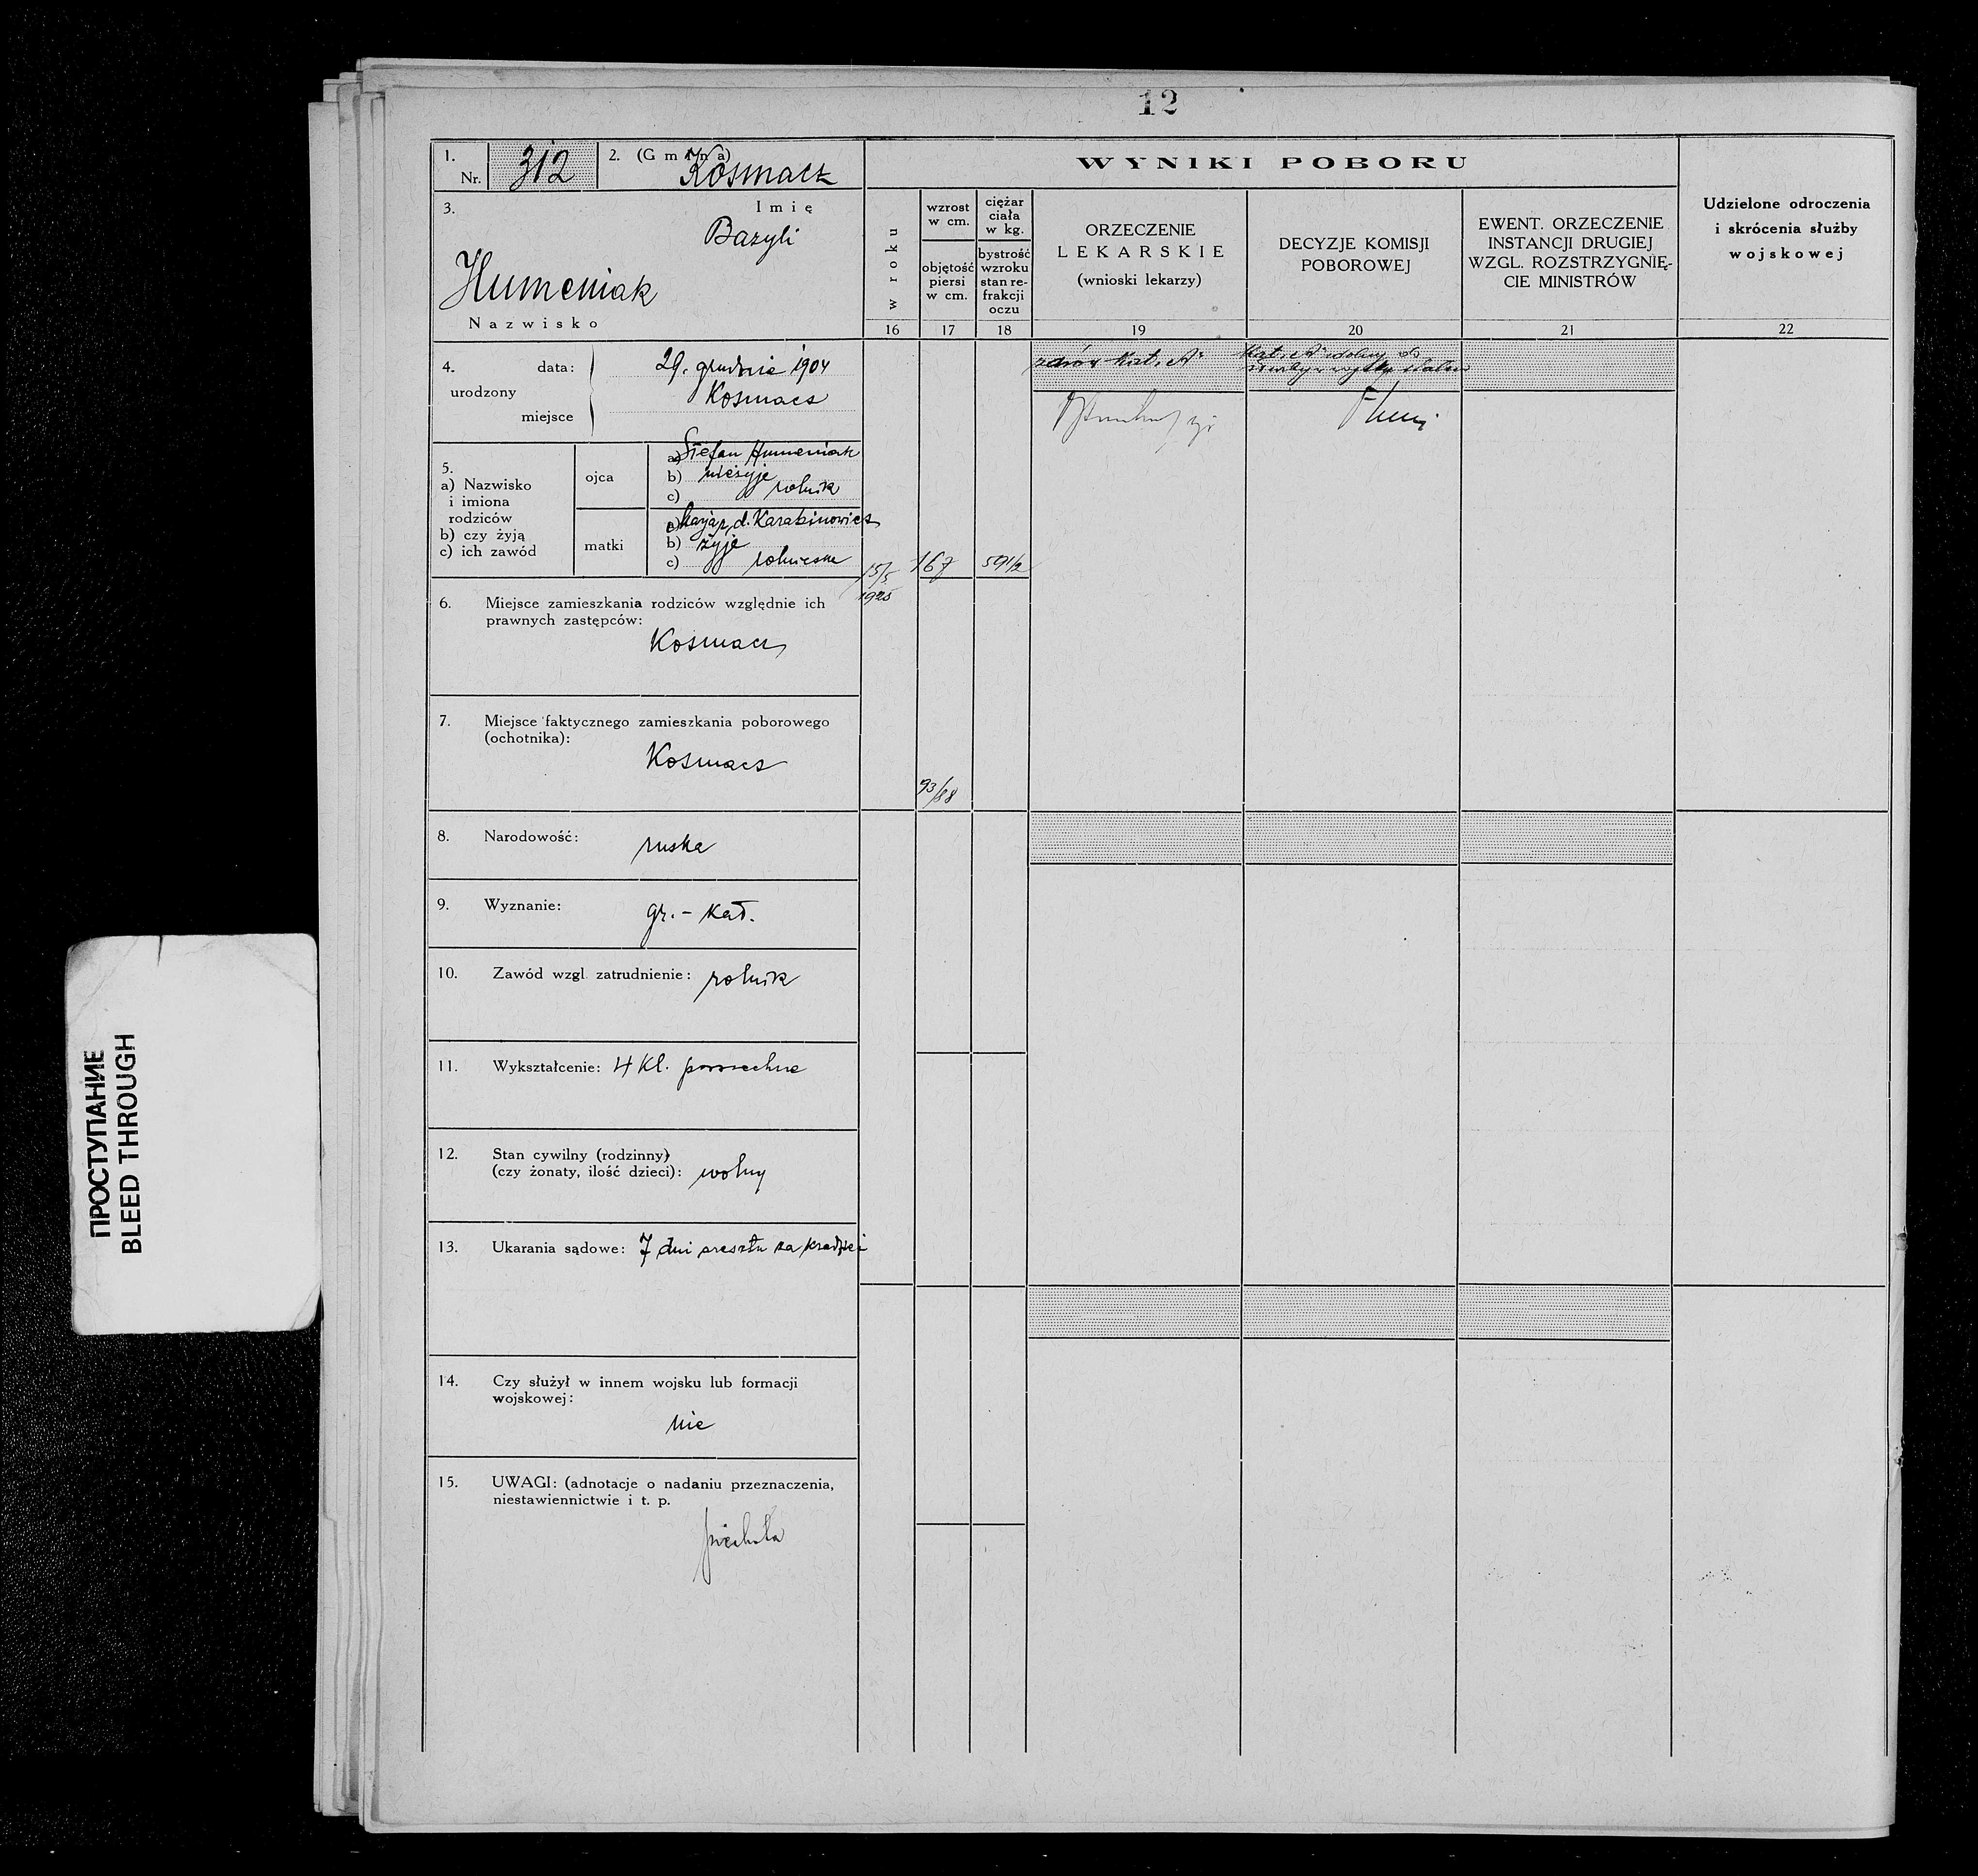 12
1.
Nr. 312
2. (Gmina) Kosmacz
3.
Imię
Bazyli
Humeniak
Nazwisko
WYNIKI POBORU
w roku
wzrost w cm.
objętość piersi w cm.
ciężar ciała w kg.
bystrość wzroku stan refrakcji oczu
ORZECZENIE
LEKARSKIE
(wnioski lekarzy)
DECYZJE KOMISJI
POBOROWEJ
EWENT. ORZECZENIE
INSTANCJI DRUGIEJ
WZGL. ROZSTRZYGNIĘ-
CIE MINISTRÓW
Udzielone odroczenia
i skrócenia służby
wojskowej
16 17 18 19 20 21 22
4. urodzony
data: 29. grudnia 1904
miejsce Kosmacz
zdrów Kat. A"
Kat. A" zdolny do
5.
a) Nazwisko
i imiona
rodziców
b) czy żyją
c) ich zawód
ojca
a) Stefan Humeniak
b) nieżyje
c) rolnik
matki
a) z d. Karabinowicz
b) żyje
c) rolniczka
15/5
1925
167
59 1/2
6. Miejsce zamieszkania rodziców względnie ich
prawnych zastępców:
Kosmacz
7. Miejsce faktycznego zamieszkania poborowego
(ochotnika):
Kosmacz
93/88
8. Narodowość: ruska
9. Wyznanie: gr.-kat.
10. Zawód wzgl. zatrudnienie: rolnik
11. Wykształcenie: 4 kl. powszechne
12. Stan cywilny (rodzinny)
(czy żonaty, ilość dzieci): wolny
13. Ukarania sądowe: 7 dni aresztu za kradzież
14. Czy służył w innem wojsku lub formacji
wojskowej:
nie
15. UWAGI: (adnotacje o nadaniu przeznaczenia,
niestawiennictwie i t. p.
piechota
ПРОСТУПАНИЕ
BLEED THROUGH